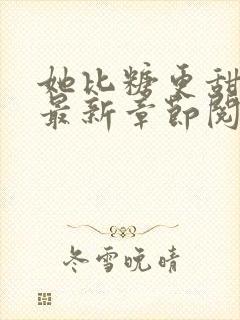 她比糖更甜
最新章节阅
冬雪晚晴